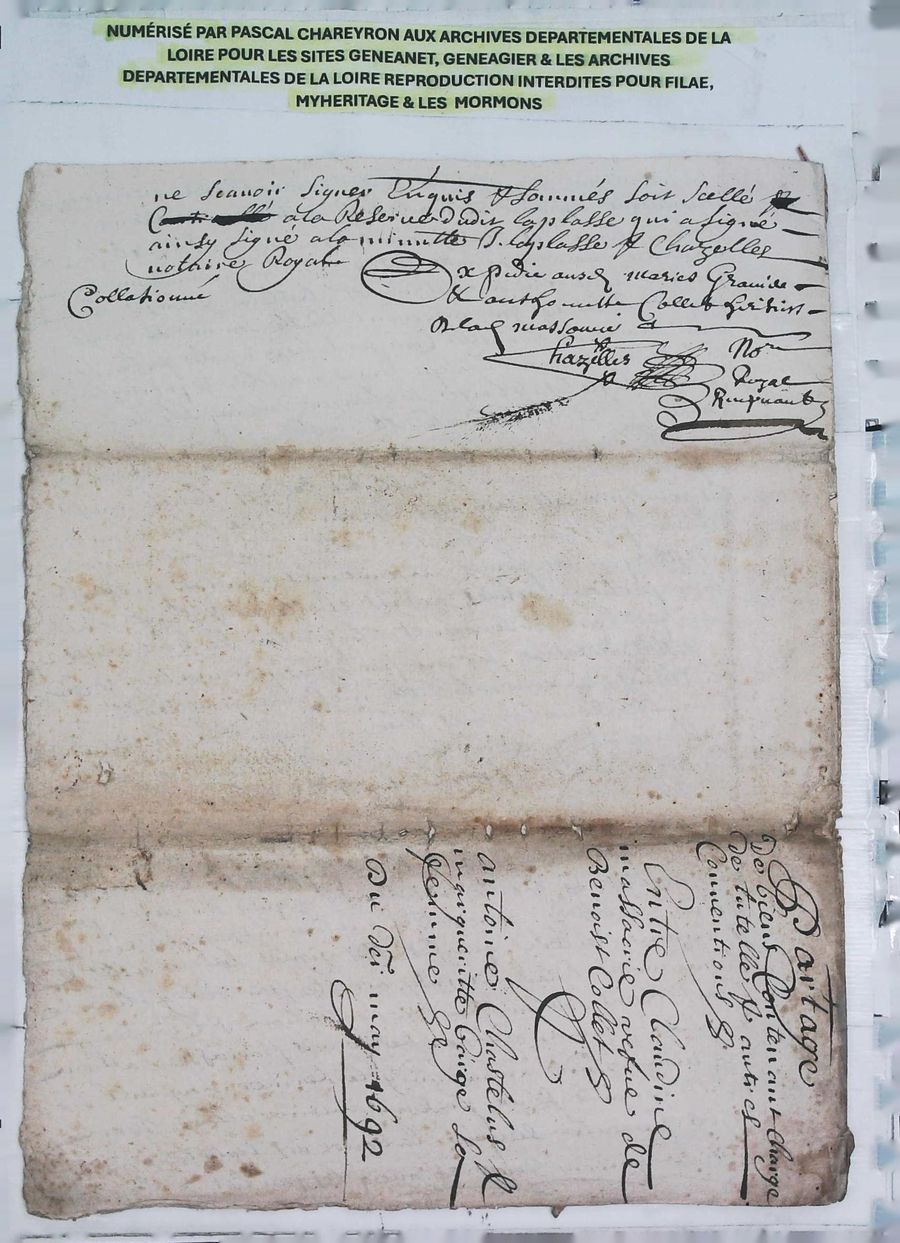 NUMÉRISÉ PAR PASCAL CHAREYRON AUX ARCHIVES DEPARTEMENTALES DE LA
LOIRE POUR LES SITES GENEANET, GENEAGIER & LES ARCHIVES
DEPARTEMENTALES DE LA LOIRE REPRODUCTION INTERDITES POUR FILAE,
MYHERITAGE & LES MORMONS
ne scauoir signer Enquis & sommés soit scellé
a la Reserue dudit laplasse qui a signé
ainsy signé a la minutte laplasse & Chazelles
notaire Royal
Collationné
Expedié mariés
& anthoinette Collet
massonnie
Chazelles Nore
Royal
Partage
De biens Contenant charge
De tutelle & autres
Conuentions
Entre Claudine
massonie vefue de
Benoist Collet
Et
Antoine Chastelus &
marguerite sa
femme
Du May 1692